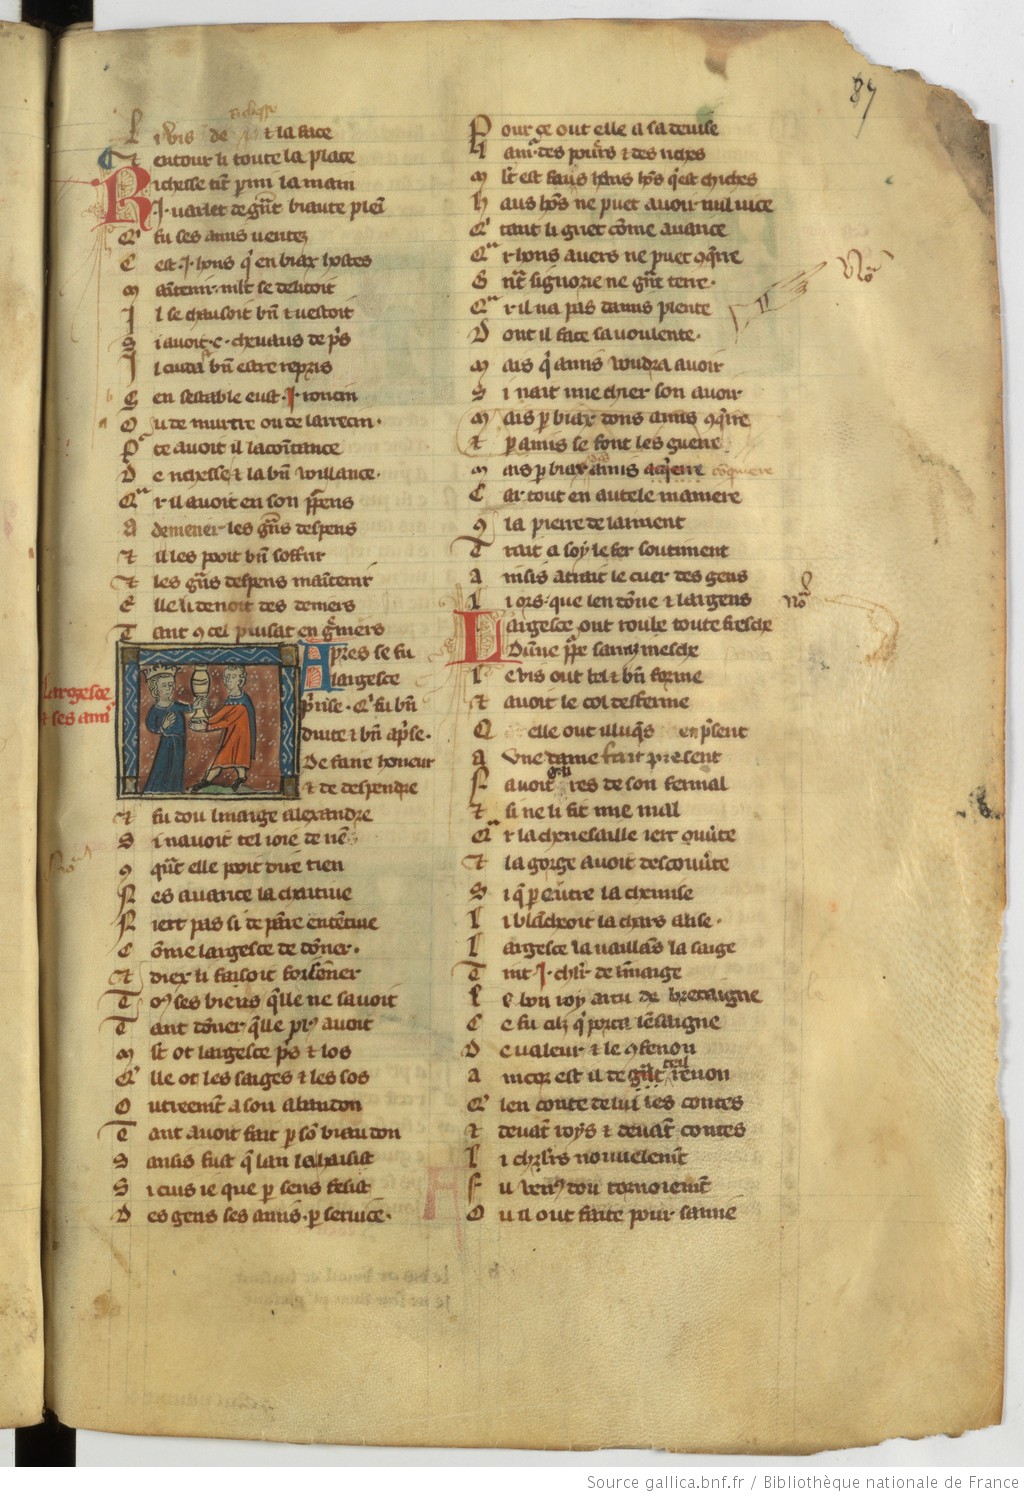 87
richesse
Li vis de et la face
Et entour li toute la place
Richesse tīt p̄mi la main
.I. varlet de gūt biaute plein
Q' fu ses amis ventez
C est .I. hons q̄ en biax hostes
M ātenir mlt se delitoit
I l se chausoit bn̄ τ vestoit
S i avoit .c. chevaus de p̄s
I l cuida bn̄ estre repris
S en sestable eust .I. roncin
O u de murtre ou de larrecin.
P' ce avoit il lacoītance
D e richesse τ la bn̄ voillance.
Q' r il avoit en son p̄pens
A demener les gūs despens
τ il les pooit bn̄ soffrir
τ les gūs despens maītenir
E lle li denoit des deniers
T ant ꝯ cel puisat en ḡniers
Largesce
τ ses ami
Apres se fu
largesce
p̄rise. q' fu bn̄
duite τ bn̄ ap̄se.
De faire honeur
τ de despendre
τ fu dou linaige alexandre
S i navoit tel joie de
ꝯ qūt elle pooit dire tien
N es avarice la chaitive
N iert pas si de p̄re ententive
C ōme largesce de dōner.
τ diex li faisoit foisōner
T oꝰ ses biens q̄lle ne savoit
T ant dōner q̄lle plꝰ avoit
M lt ot largesce p̄s τ los
E lle ot les saiges τ les fos
O utreemt a son abandon
T ant avoit fait p sō biau don
S ansis fust q̄ lan le haisist
S i cuis je que p̄ sens feist
D es gens ses amis. p̄ service.
P our ce out elle a sa devise
H ami des pov̄rs τ des riches
M lt est faus hons q̄ est chiches
H aus hōs ne puet avoir nul vice
Q' tant li griet cōme avarice
Q' r hons avers ne puet ꝯq̄rre
S nt̄ signorie ne gūt terre.
Q' r il na pas damis plente
D ont il face sa voulente.
M ais q̄ amis voudra avoir
S i nait mie chier son avoir
M ais p̄ biax dons amis ꝯq̄rre
τ p̄ amis se font les guerre
M ais p̄ biax dons amis acq̄rre conquerre
C ar tout en autele maniere
ꝯ la pierre de laimant
T rait a soy le fer soutiment
A insis atrait le cuer des gens
L i ors que len dōne τ largens
No
No
Largesce out robe toute fresche
Dune p̄p̄e sarrazinesche
L e vis out bel τ bn̄ forme
τ avoit le col desferme
Q elle out illuq̄s en p̄sent
A une dame fait present
N avoit res de son fermal
τ si ne li sit mie mal
Q' r la chevesaille iert ouūte
τ la gorge avoit descouūte
S i q̄ p̄ eūtre la chemise
L i blācheoit la chars alise.
L argesce la vaillās la saige
T int .I. chlr̄ de linaige
L e bon roy artu de bretaigne
C e fu cilz q̄ porta lēsaigne
D e valeur τ le ꝯfenon
A incor est il de tel renon
Q' len conte de lui les contes
τ devāt roys τ devāt contes
L i chlrs nouvelemt
F u venꝰ dou tornoiemt
O u il out faite pour samie
Source gallica.bnf.fr / Bibliothèque nationale de France